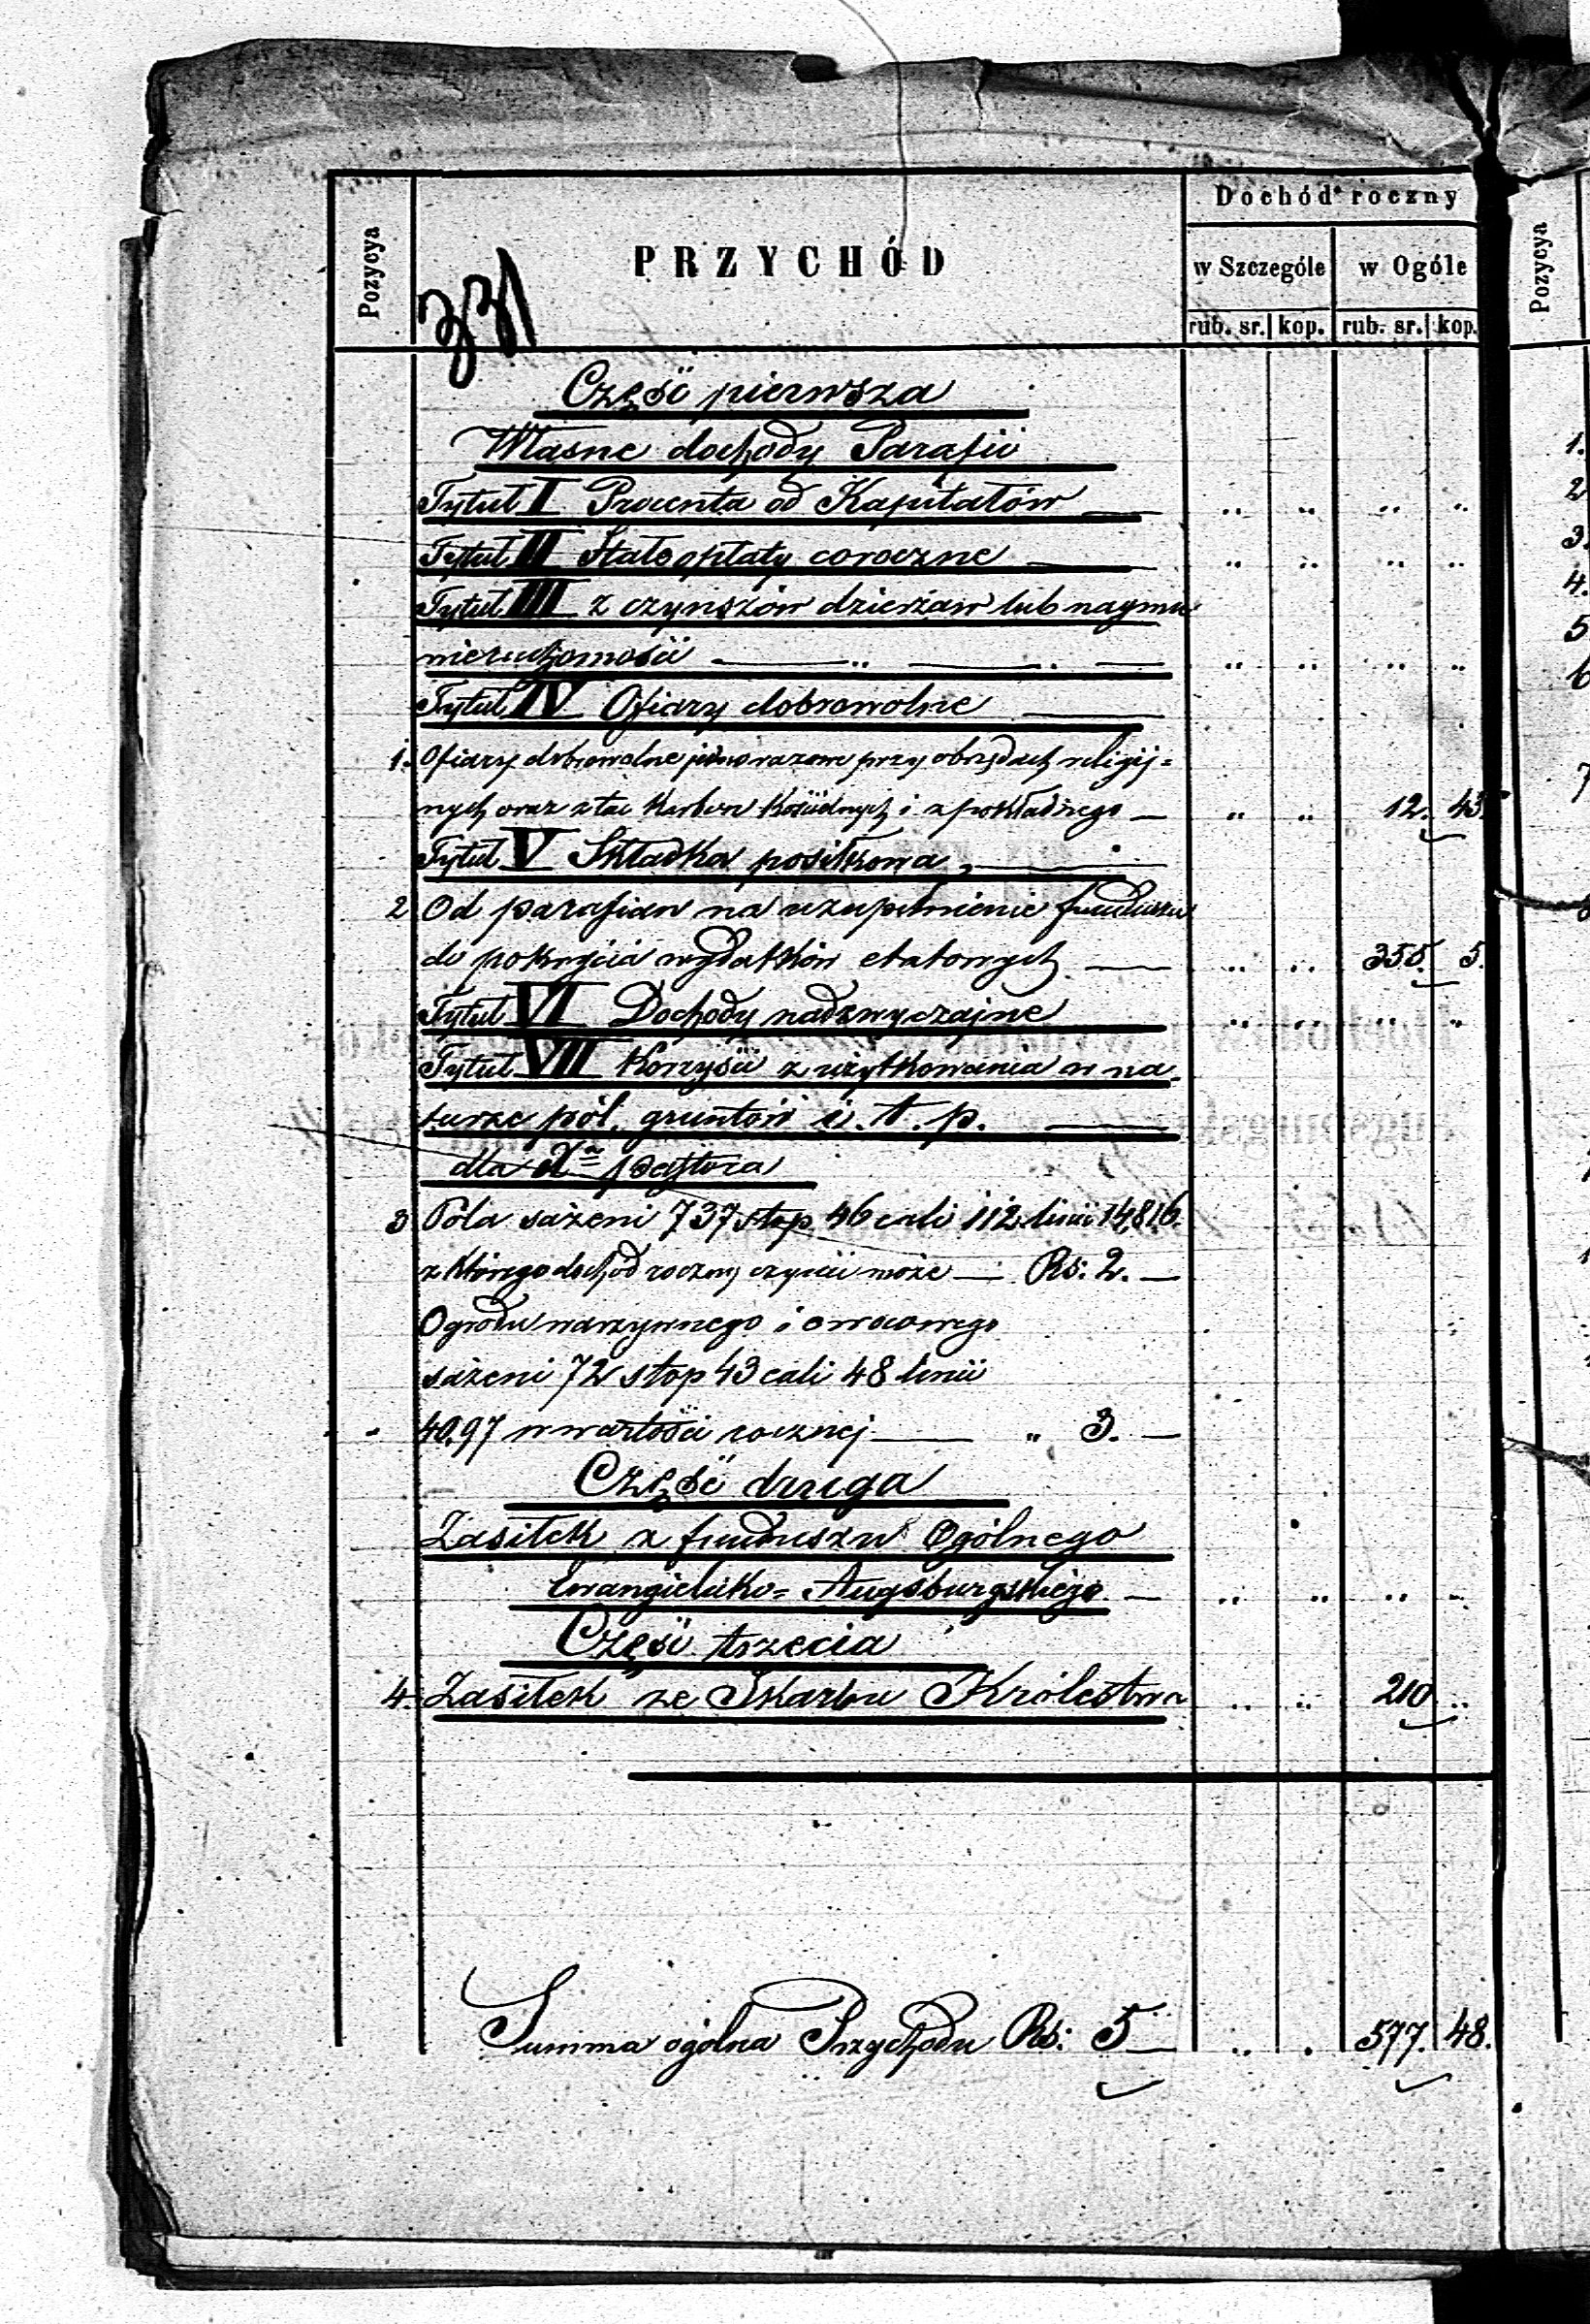 Dochód roczny
Pozycya PRZYCHÓD w Szczególe w Ogóle Pozycya
331
rub. sr. kop. rub. sr. kop.
Część pierwsza
Własne dochody Parafii
Tytuł I Procenta od Kapitałów — „ „ „ „
Tytuł II Stałe opłaty coroczne — „ „ „ „
Tytuł III z czynszów dzierżaw lub naymu
nieruchomości — „ — „ — „ „ „ „
Tytuł IV Ofiary dobrowolne —
1. Ofiary dobrowolne jednorazowe przy obrzędach religij=
nych oraz z tac Karbon Kościelnych i z pokładnego — „ „ 12. 43.
Tytuł V Składka posiłkowa, —
2 Od parafian na uzupełnienie funduszu
do pokrycia wydatków etatowych — „ „ 355. 5.
Tytuł VI Dochody nadzwyczajne „ „ „ „
Tytuł VII Korzyści z użytkowania w na-
turze pól, gruntów i. t. p. —
dla Xa pastora
3 Pola sażeni 737 stop 46 cali 112 linii 14,816.
z którego dochód roczny czynić może — Rs: 2. —
Ogrodu warzywnego i owocowego
sażeni 72 stop 43 cali 48 linii
40,97 w wartości rocznej — „ 3. —
Część druga
Zasiłek z funduszu Ogólnego
Ewangielicko=Augsburgskiego — „ „ „ „
Część trzecia
4. Zasiłek ze Skarbu Królestwa „ „ 210 „
Summa ogólna Przychodu Rs: 5 — „ „ 577. 48.